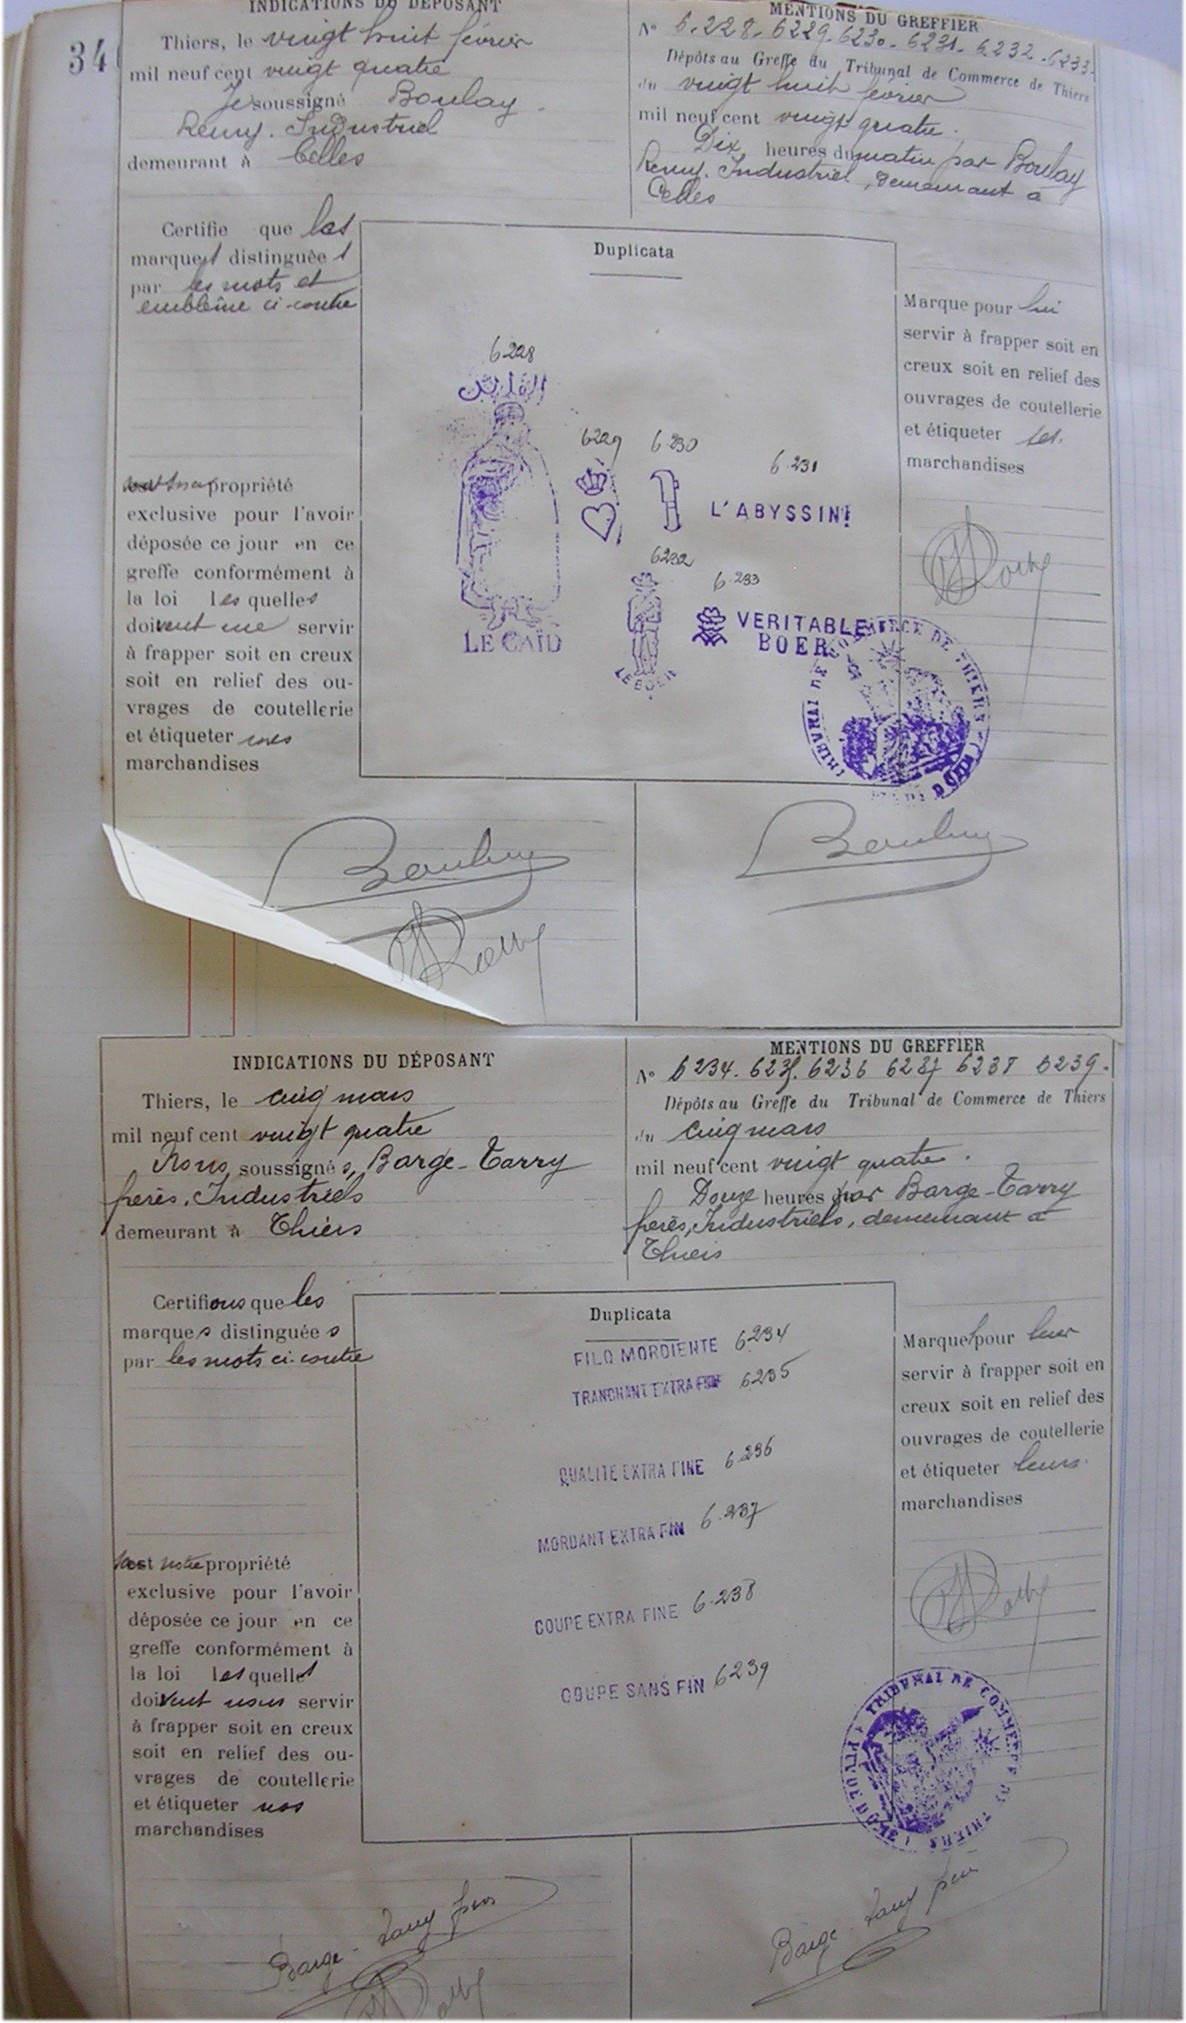 34
INDICATIONS DU DÉPOSANT
Thiers, le vingt huit février
mil neuf cent vingt quatre
Je soussigné Boulay
Remy. Industriel
demeurant à Celles
MENTIONS DU GREFFIER
N° 6.228-6229-6230-6231-6232-6233.
Dépôts au Greffe du Tribunal de Commerce de Thiers
du vingt huit février
mil neuf cent vingt quatre.
Dix heures du matin par Boulay
Remy. Industriel, demeurant à
Celles
Certifie que les
marques distinguées
par les mots et
emblême ci-contre
propriété
exclusive pour l'avoir
déposée ce jour en ce
greffe conformément à
la loi lesquelles
doivent me servir
à frapper soit en creux
soit en relief des ou-
vrages de coutellerie
et étiqueter mes
marchandises
Duplicata
6228
LE CAÏD
6229
6230
6.231
L'ABYSSIN
6232
LE BOER
6.233
VERITABLE
BOER
Marque pour lui
servir à frapper soit en
creux soit en relief des
ouvrages de coutellerie
et étiqueter ses
marchandises
Boulay
Boulay
INDICATIONS DU DÉPOSANT
Thiers, le cinq mars
mil neuf cent vingt quatre
Nous soussignés, Barge-Tarry
frères. Industriels
demeurant à Thiers
MENTIONS DU GREFFIER
N° 6234. 6235. 6236 6237 6238 6239.
Dépôts au Greffe du Tribunal de Commerce de Thiers
du cinq mars
mil neuf cent vingt quatre.
Douze heures par Barge-Tarry
frères, Industriels, demeurant à
Thiers
Certifions que les
marques distinguées
par les mots ci-contre
notre propriété
exclusive pour l'avoir
déposée ce jour en ce
greffe conformément à
la loi lesquelles
doivent nous servir
à frapper soit en creux
soit en relief des ou-
vrages de coutellerie
et étiqueter nos
marchandises
Duplicata
FILO MORDIENTE 6234
TRANCHANT EXTRA FIN 6235
QUALITE EXTRA FINE 6.236
MORDANT EXTRA FIN 6.237
COUPE EXTRA FINE 6.238
COUPE SANS FIN 6239
Marque pour leur
servir à frapper soit en
creux soit en relief des
ouvrages de coutellerie
et étiqueter leurs
marchandises
TRIBUNAL DE COMMERCE DE THIERS
Barge-Tarry frères
Barge-Tarry frères